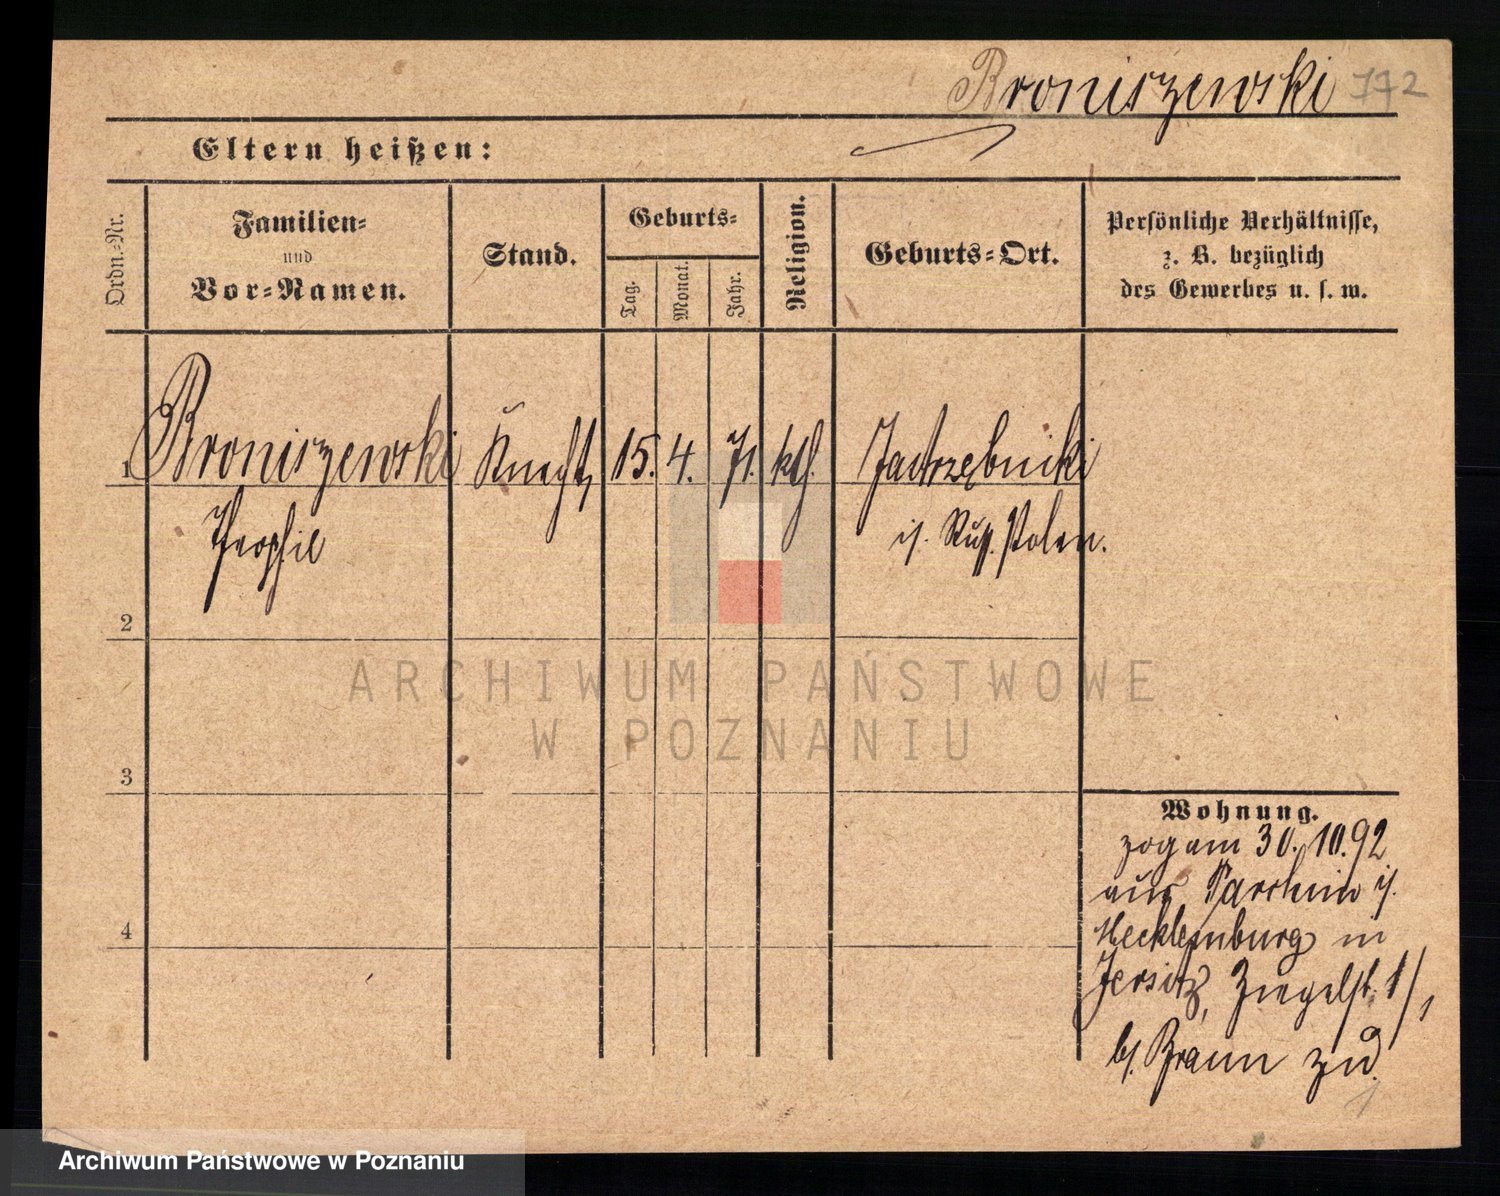 Broniszewski 772
Eltern heißen:
Ordn.-Nr.
Familien-
und
Vor-Namen.
Stand.
Geburts-
Tag.
Monat.
Jahr.
Religion.
Geburts-Ort.
Persönliche Verhältnisse,
z. B. bezüglich
des Gewerbes u. s. w.
1 Broniszewski Knecht, 15. 4. 71. kth. Jastrzębniki
Theophil i/. Russ. Polen.
2
ARCHIWUM PAŃSTWOWE
W POZNANIU
3
Wohnung.
zog am 30. 10. 92
aus i/.
Mecklemburg in
Jersitz, Ziegelst. 1/1
b/. Braun zu.
4
Archiwum Państwowe w Poznaniu